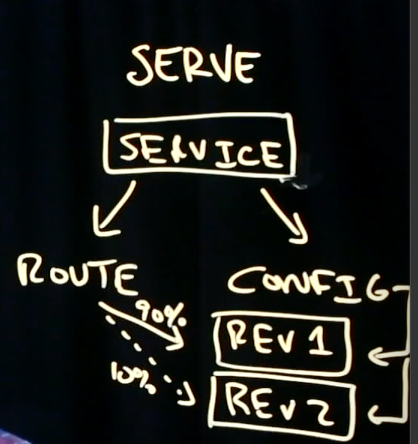 SERVE
SERVICE
ROUTE
CONFIG
90%
REV 1
10%
REV 2